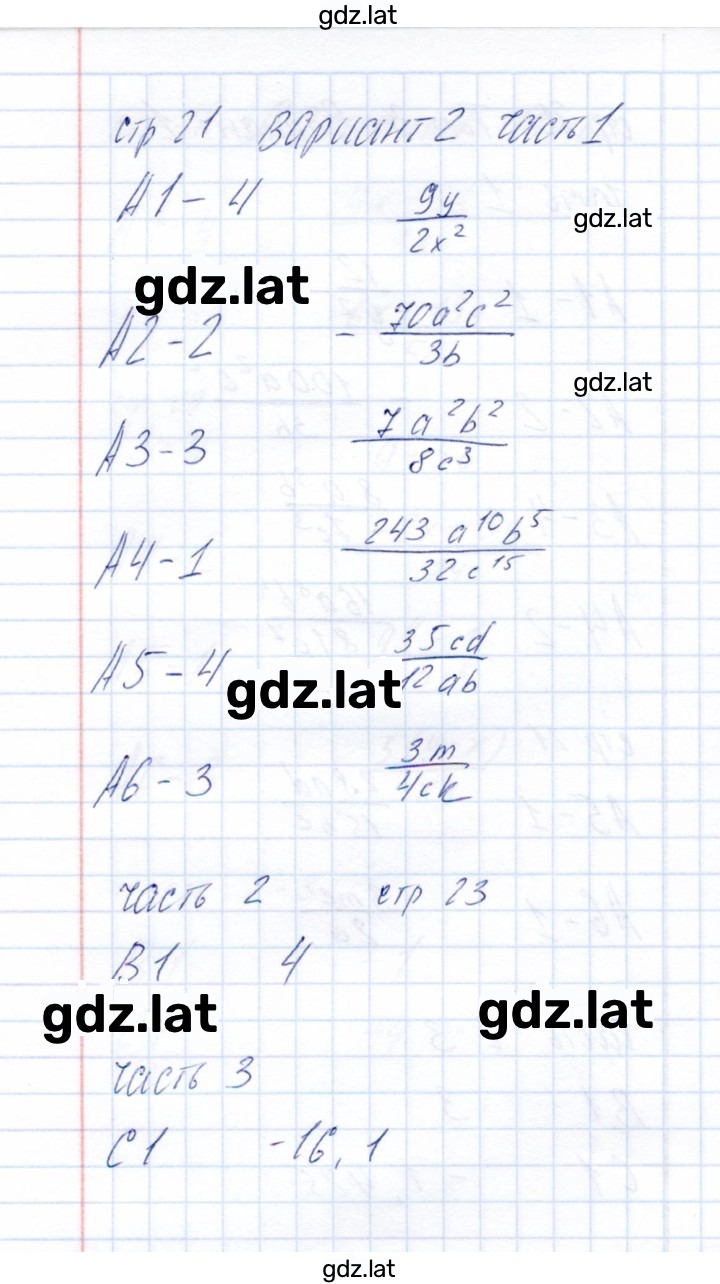 gdz.lat
стр 21 Вариант 2 часть 1
А1 - 4 9y/2x²
gdz.lat
gdz.lat
А2 - 2 - 70a²c²/3b
gdz.lat
А3 - 3 7a²b²/8c³
А4 - 1 243a¹⁰b⁵/32c¹⁵
А5 - 4 35cd/12ab
gdz.lat
А6 - 3 3m/4ck
часть 2 стр 23
В1 4
gdz.lat gdz.lat
часть 3
С1 -16, 1
gdz.lat